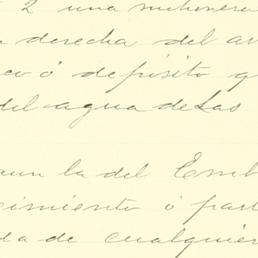 2 una
derecha del
ó depósito q
del agua de Las
aun la del Emb
cimiento ó par
da de cualquier